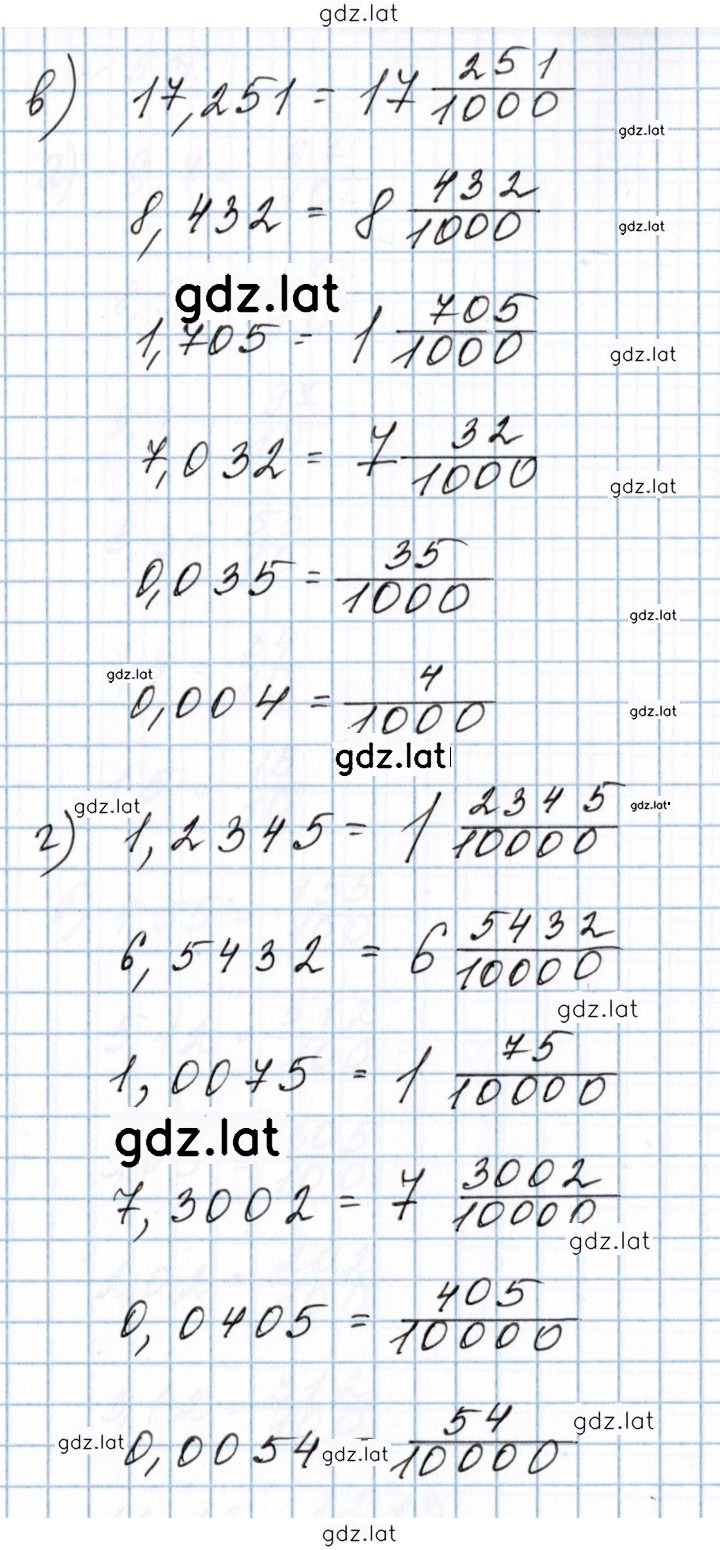 gdz.lat
в) 17,251 = 17 251/1000
gdz.lat
8,432 = 8 432/1000
gdz.lat
gdz.lat
1,705 = 1 705/1000
gdz.lat
7,032 = 7 32/1000
gdz.lat
0,035 = 35/1000
gdz.lat
gdz.lat
0,004 = 4/1000
gdz.lat
gdz.lat
gdz.lat
г) 1,2345 = 1 2345/10000
gdz.lat
6,5432 = 6 5432/10000
gdz.lat
1,0075 = 1 75/10000
gdz.lat
7,3002 = 7 3002/10000
gdz.lat
0,0405 = 405/10000
gdz.lat
0,0054 = 54/10000
gdz.lat
gdz.lat
gdz.lat